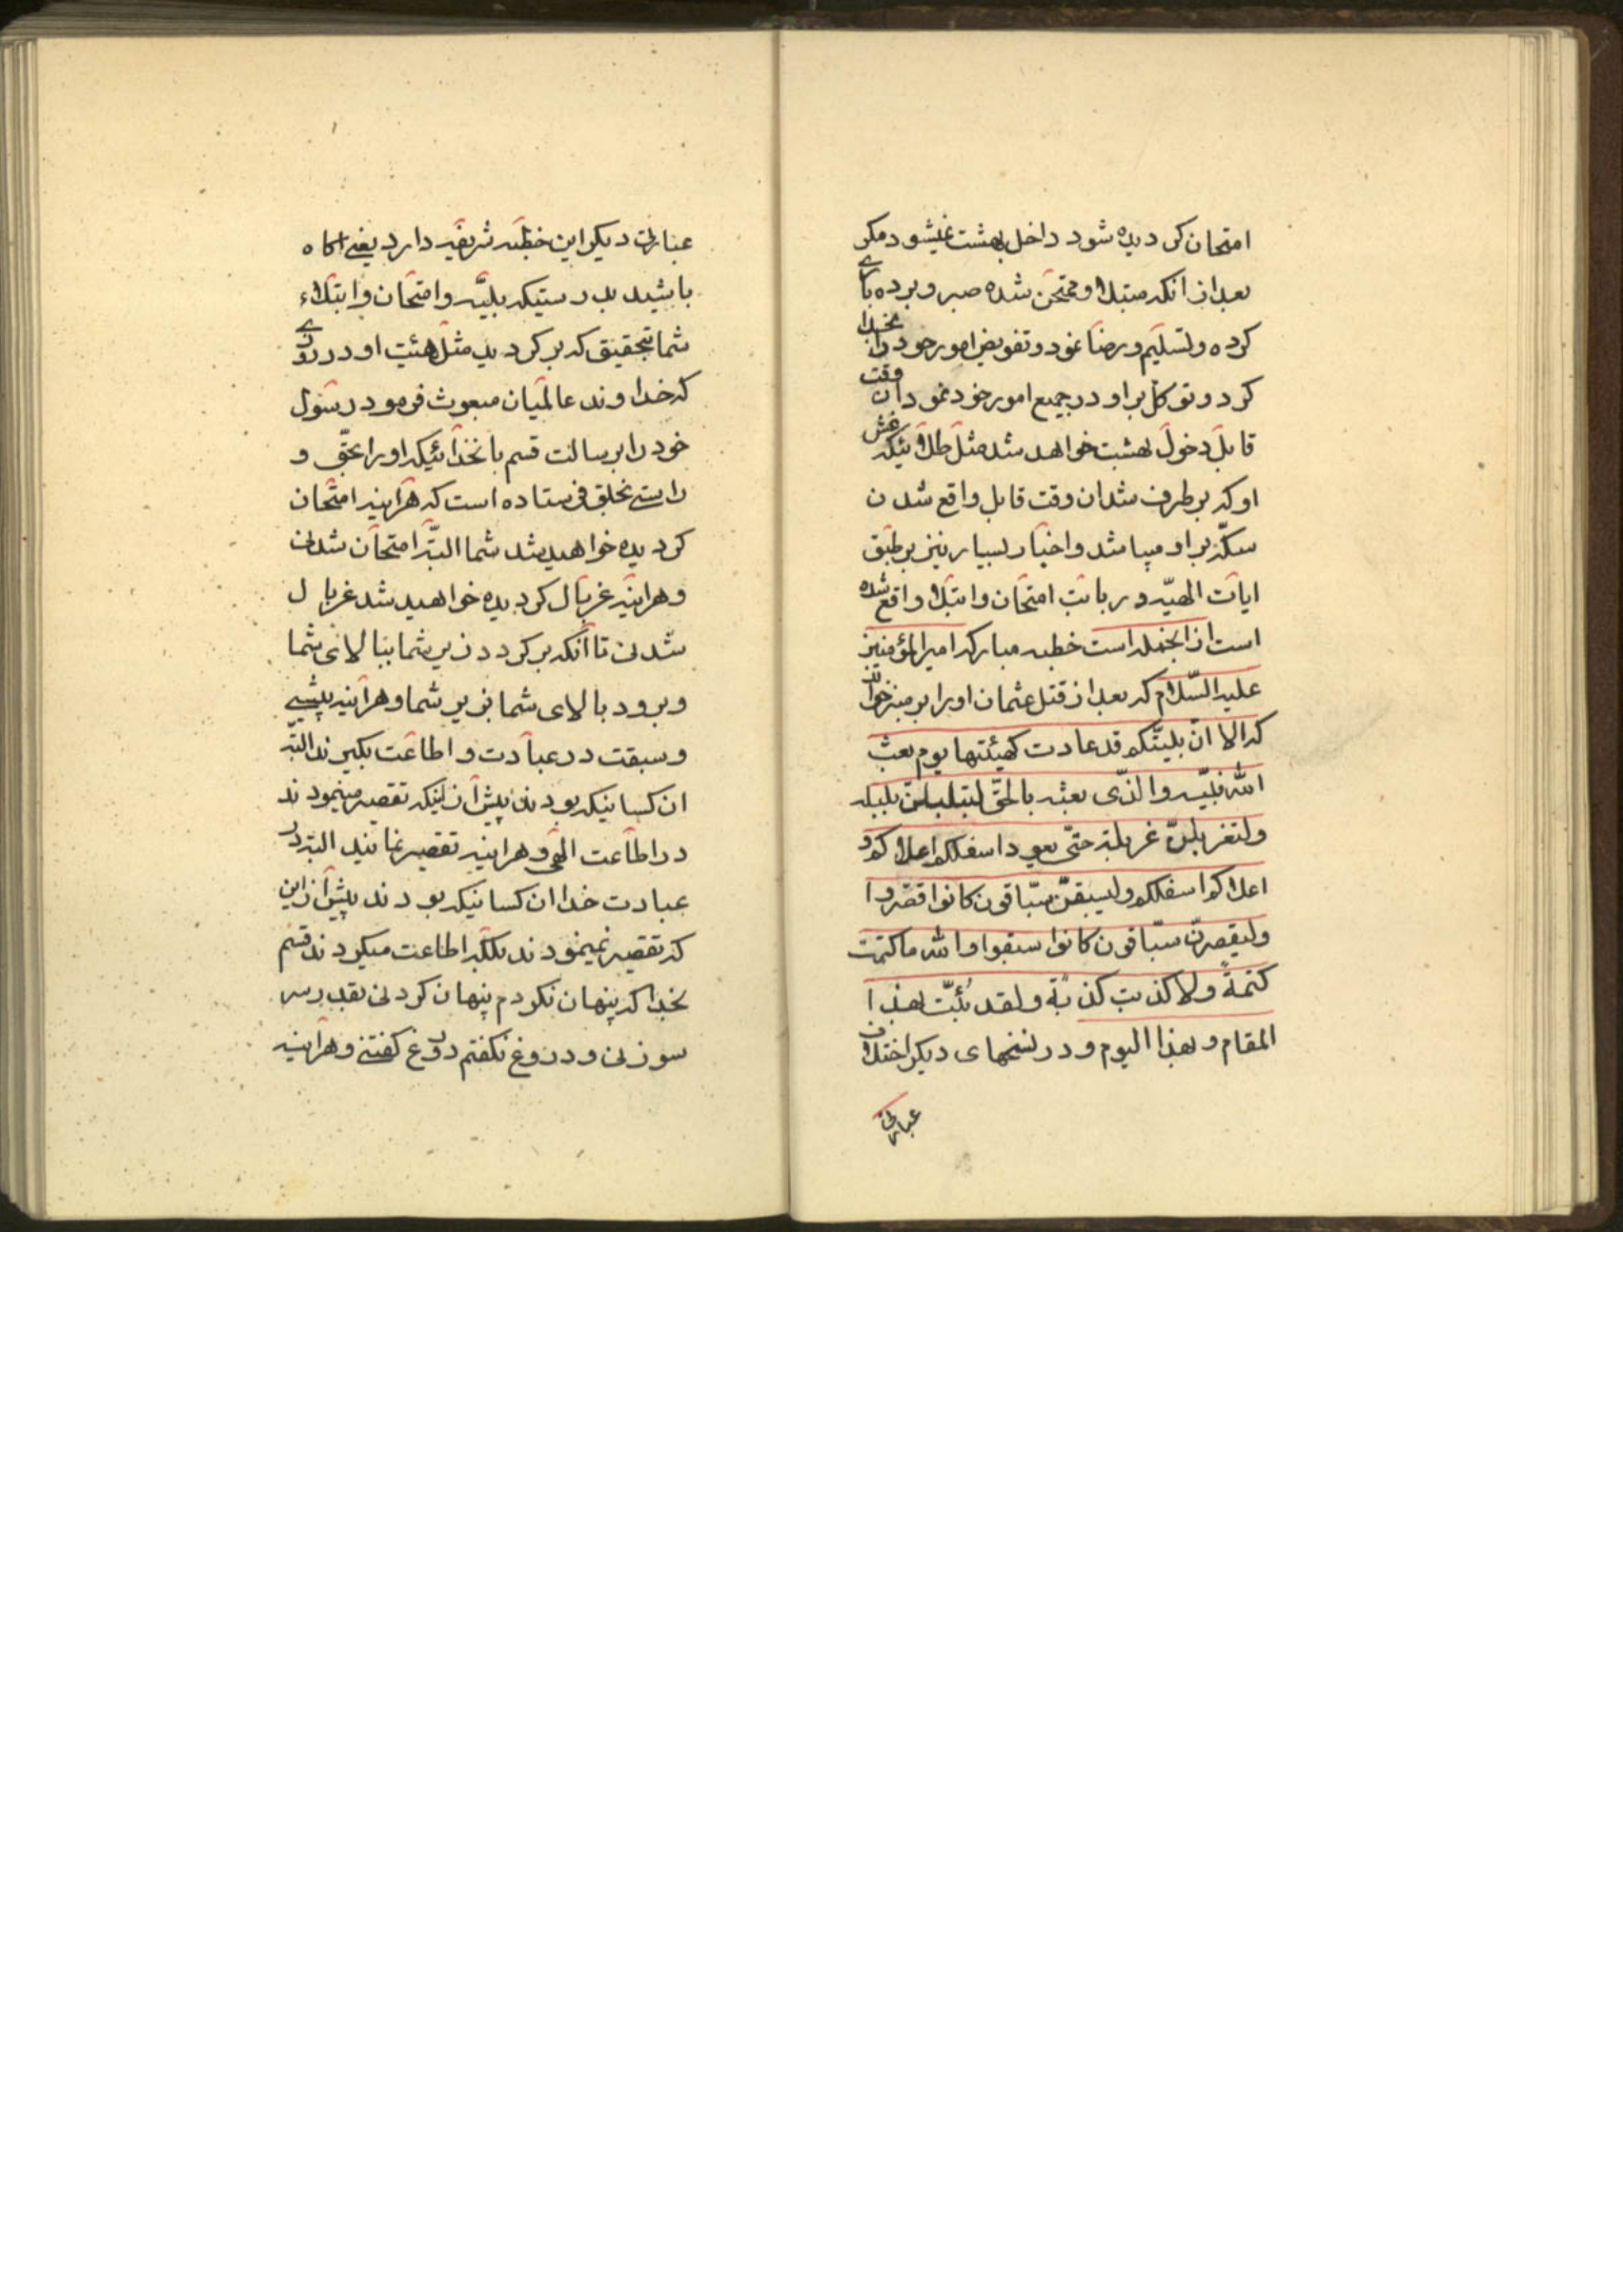 امتحان کردیده شود داخل بهشت نمیشود مکر
بعد از انکه مبتلا و ممتحن شده صبر و بردباری
کرده و تسلیم و رضا نمود و تفویض امور خود را بخدا
کرد و توکل بر او در جمیع امور خود نمود ان وقت
قابل دخول بهشت خواهد شد مثل طلائیکه غش
او که برطرف شد ان وقت قابل واقع شدن
سکّه بر او میباشد و اخبار بسیار نیز بر طبق
ایات الهیّه در باب امتحان و ابتلا واقع شده
است از انجمله است خطبه مبارکه امیرالمؤمنین
علیه السّلام که بعد از قتل عثمان او را بر منبر خواند
که الا انّ بلیّتکم قد عادت کهیئتها یوم بعث
الله نبیّه والذّی بعثه بالحقّ لتبلبلنّ بلبله
ولتغربلنّ غربلة حتّی یعود اسفلکم اعلاکم و
اعلاکم اسفلکم ولیسبقنّ سبّاقون کانوا قصّروا
ولیقصرنّ سبّاقون کانوا سبقوا والله ما کتمت
کتمةً ولا کذبت کذبة ولقد نُبّئت بهذا
المقام و بهذا الیوم و در نسخهای دیکر اختلاف
عبارتی
عبارتی دیکر این خطبه شریفه دارد یعنی اکاه
باشید بدرستیکه بلیّه و امتحان و ابتلاء
شما بتحقیق که بر کردید مثل هیئت او در روزی
که خداوند عالمیان مبعوث فرمود رسول
خود را برسالت قسم بانخدائیکه او را بحقّ و
راستی بخلق فرستاده است که هراینه امتحان
کردیده خواهید شد شما البتّه امتحان شدنی
و هراینه غربال کردیده خواهید شد غربال
شدنی تا آنکه بر کردد زیر شما ببالای شما
و برود بالای شما بزیر شما و هراینه پیشی
و سبقت در عبادت و اطاعت بکیرند البتّه
ان کسانیکه بودند پیش از اینکه تقصیر مینمودند
در اطاعت الهی و هراینه تقصیر نمایند البته در
عبادت خدا ان کسانیکه بودند پیش از این
که تقصیر نمینمودند بلکه اطاعت میکردند قسم
بخدا که پنهان نکردم پنهان کردنی بقدر سر
سوزنی و دروغ نکفتم دروغ کفتنی و هراینه